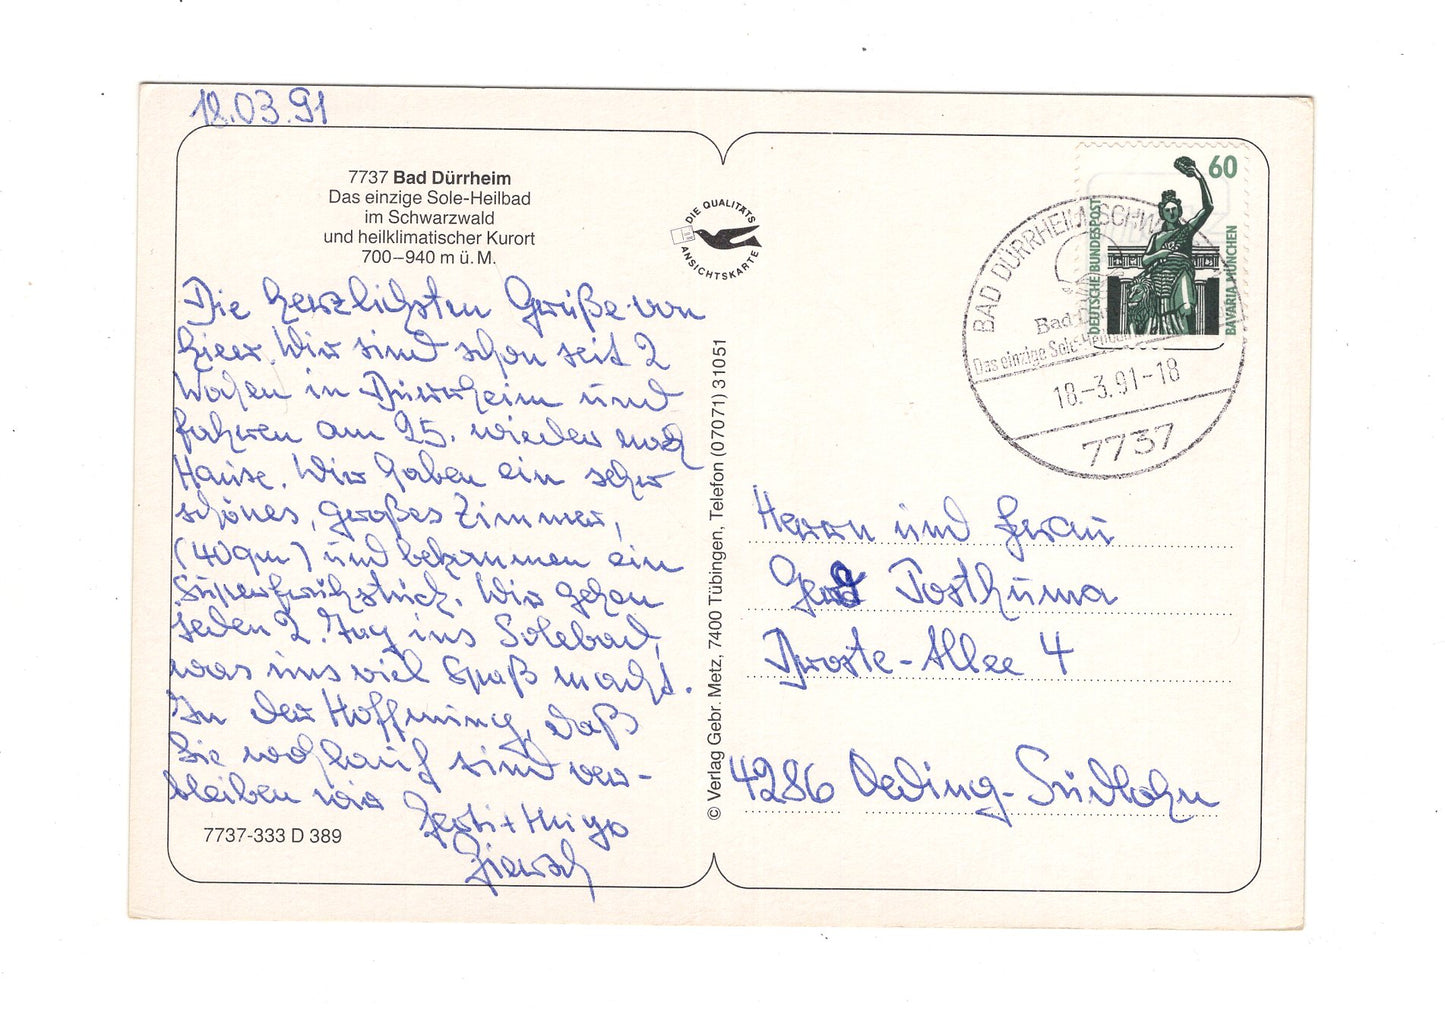 18.03.91
7737 Bad Dürrheim
Das einzige Sole-Heilbad
im Schwarzwald
und heilklimatischer Kurort
700–940 m ü. M.
Die herzlichsten Grüße von
hier. Wir sind schon seit 2
Wochen in Dürrheim und
fahren am 25. wieder nach
Hause. Wir haben ein sehr
schönes, großes Zimmer,
(40qm) und bekommen ein
Superfrühstück. Wir gehen
jeden 2. Tag ins Solebad,
was uns viel Spaß macht.
In der Hoffnung, daß
Sie wohlauf sind ver-
bleiben wir
+ Hugo
7737-333 D 389
DIE QUALITÄTS
ANSICHTSKARTE
© Verlag Gebr. Metz, 7400 Tübingen, Telefon (07071) 31051
60
DEUTSCHE BUNDESPOST
BAVARIA MÜNCHEN
BAD DÜRRHEIM, SCHW
Bad
Das einzige Sole-Heilbad
18.-3.91-18
7737
Herrn und Frau
Gerd Posthuma
Droste-Allee 4
4286 Oeding-Südlohn